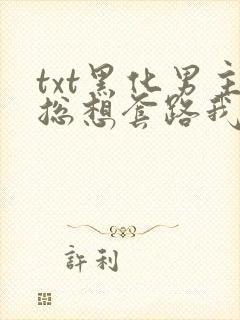 txt黑化男主
总想套路我
許利